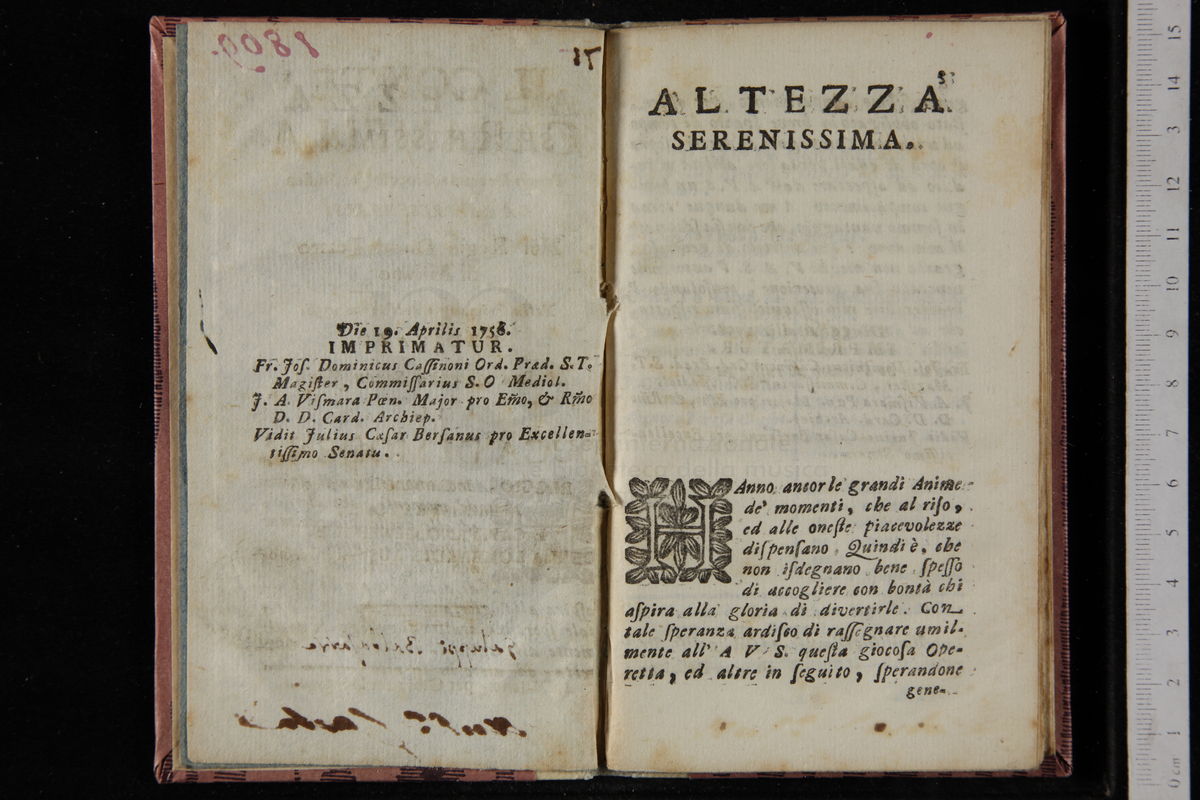 1809.
Die 19. Aprilis 1758.
IMPRIMATUR.
Fr. Joſ. Dominicus Caſſinoni Ord. Præd. S. T.
Magiſter, Commiſſarius S. O Mediol.
J. A. Viſmara Pœn. Major pro Em̃o, & Rm̃o
D. D. Card. Archiep.
Vidit Julius Cæſar Berſanus pro Excellen-
tiſſimo Senatu.
ALTEZZA
SERENISSIMA.
HAnno ancor le grandi Anime
de' momenti, che al riſo,
ed alle oneſte piacevolezze
diſpenſano. Quindi è, che
non iſdegnano bene ſpeſſo
di accogliere con bontà chi
aſpira alla gloria di divertirle. Con
tale ſperanza ardiſco di raſſegnare umil-
mente all' A V S. queſta giocoſa Ope-
retta, ed altre in ſeguito, ſperandone
gene-
0 cm 1 2 3 4 5 6 7 8 9 10 11 12 13 14 15